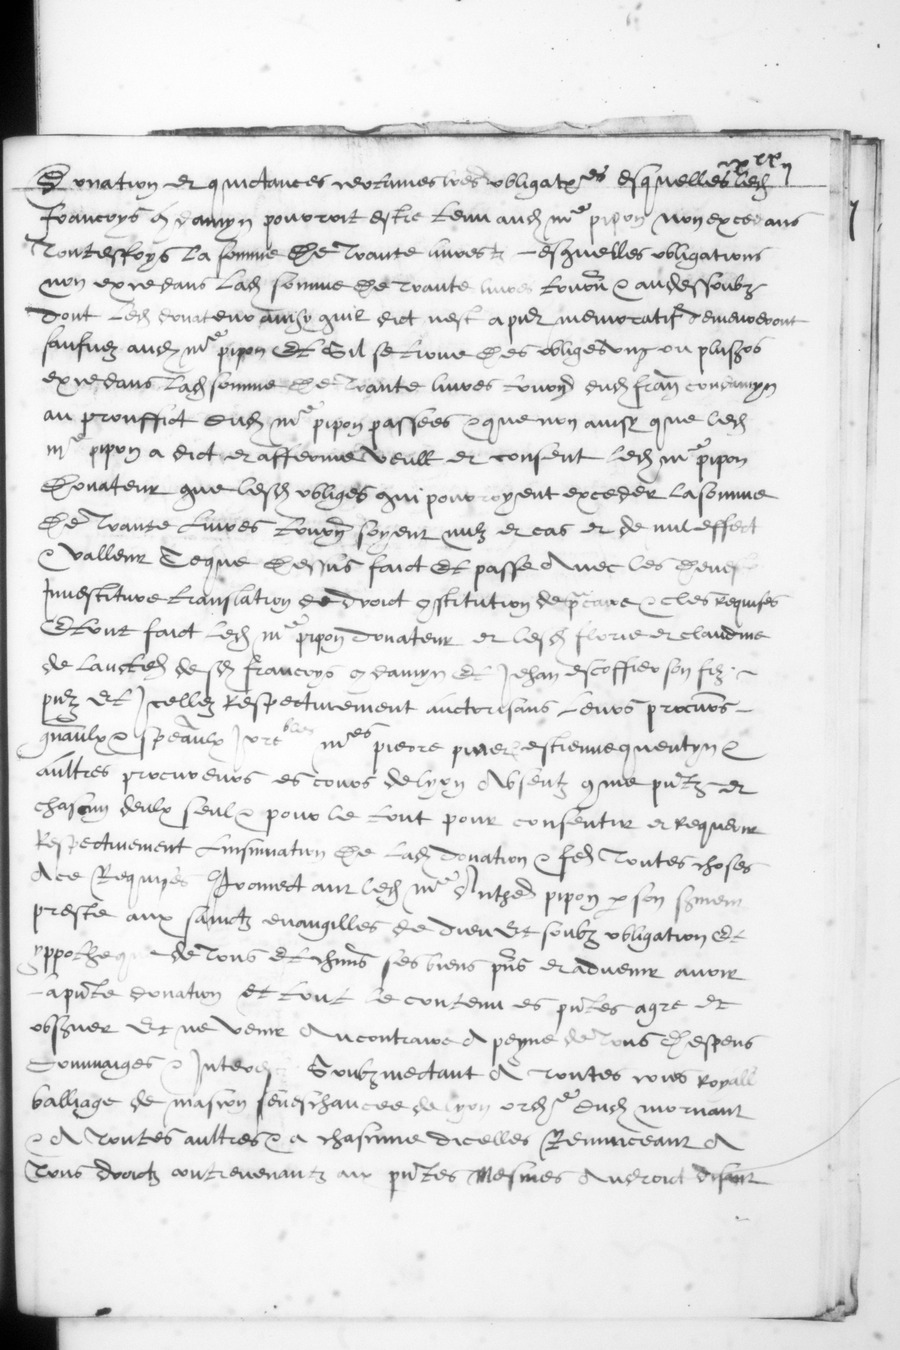 Donation et quictances desquelles led
francoys condamyn pourroit estre tenu aud mre pipon non excedans
toutesfoys la somme de trante livres tz desquelles obligations
non excedans lad somme de trante livres tourn & audessoubz
dont led donateur ainsy quil dict nest a pnt memoratif demeureront
saufuez aud mre pipon Et Sil se trouve des obliges ung ou plusrs
excedans lad somme de trante livres tourn dud fran condamyn
au prouffict dud mre pipon passees & que non ainsy que led
mre pipon a dict et afferme veult et consent led mre pipon
donateur que lesd obliges qui pourroyent exceder la somme
de trante livres tourn soyent nulz et cas et de nul effect
& valleur Ce que dessus faict Et passe Avec les
Investiture translation de droict constitution de pcaire & cles requises
Et tout faict led mre pipon donateur et lesd florie et claudine
de lauctd desd francoys condamyn Et Jehan escoffier son filz
pntz Et Icelles Respectivement auctorisans leurs procurs
gnaulx & speaulx mres pierre estienne quentyn &
aultres procureurs es cours de lyon Absentz come pntz et
chascun deulx seul & pour le tout pour consentir et requerir
Respectivement Linsinuation de lad donation & Toutes choses
A ce Requises Promectant led mre Anthe pipon p son serment
preste aux sainctz evangilles de dieu Et soubz obligation Et
yppotheque de tous Et chuns ses biens pns et advenir avoir
la pnte donation Et tout le contenu es pntes agre et
obsuer Et ne venir Au contraire A peyne de tous despens
dommaiges & Interestz Soubzmectant A toutes cours royalle
balliage de mascon seneschaucee de lyon ordre dud mornant
& A toutes aultres & a chascune dicelles Renunceant A
tous droictz contrevenantz aux pntes Mesmes Au droict disant